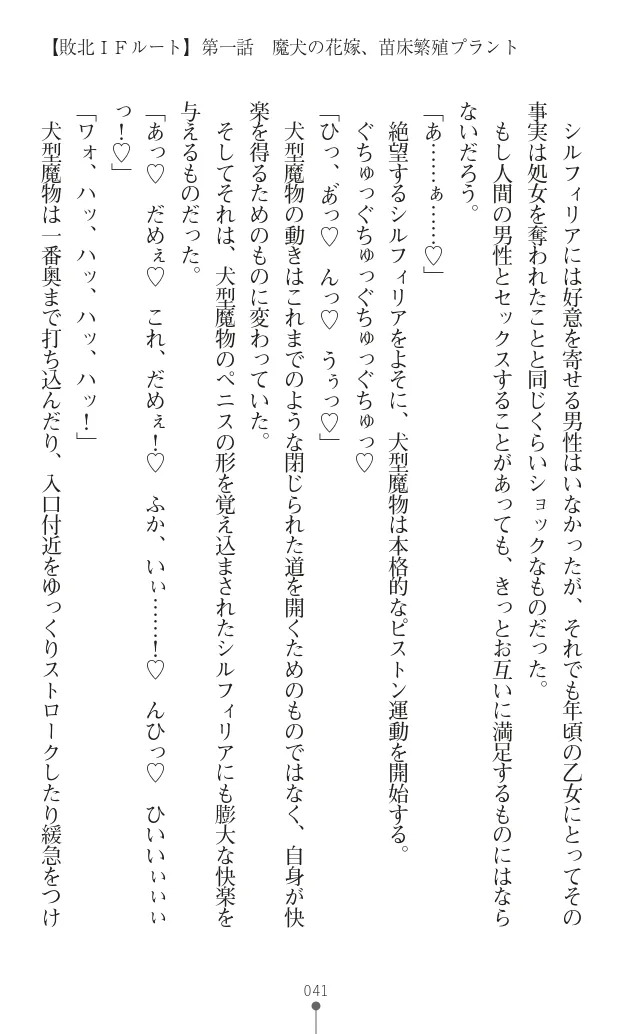 【敗北ＩＦルート】第一話　魔犬の花嫁、苗床繁殖プラント
シルフィリアには好意を寄せる男性はいなかったが、それでも年頃の乙女にとってその
事実は処女を奪われたことと同じくらいショックなものだった。
もし人間の男性とセックスすることがあっても、きっとお互いに満足するものにはなら
ないだろう。
「あ……ぁ……♡」
絶望するシルフィリアをよそに、犬型魔物は本格的なピストン運動を開始する。
ぐちゅっぐちゅっぐちゅっぐちゅっ♡
「ひっ、あ゙っ♡　んっ♡　うぅっ♡」
犬型魔物の動きはこれまでのような閉じられた道を開くためのものではなく、自身が快
楽を得るためのものに変わっていた。
そしてそれは、犬型魔物のペニスの形を覚え込まされたシルフィリアにも膨大な快楽を
与えるものだった。
「あっ♡　だめぇ♡　これ、だめぇ！♡　ふか、いぃ……！♡　んひっ♡　ひいいぃぃぃ
っ！♡」
「ワォ、ハッ、ハッ、ハッ、ハッ！」
犬型魔物は一番奥まで打ち込んだり、入口付近をゆっくりストロークしたり緩急をつけ
041